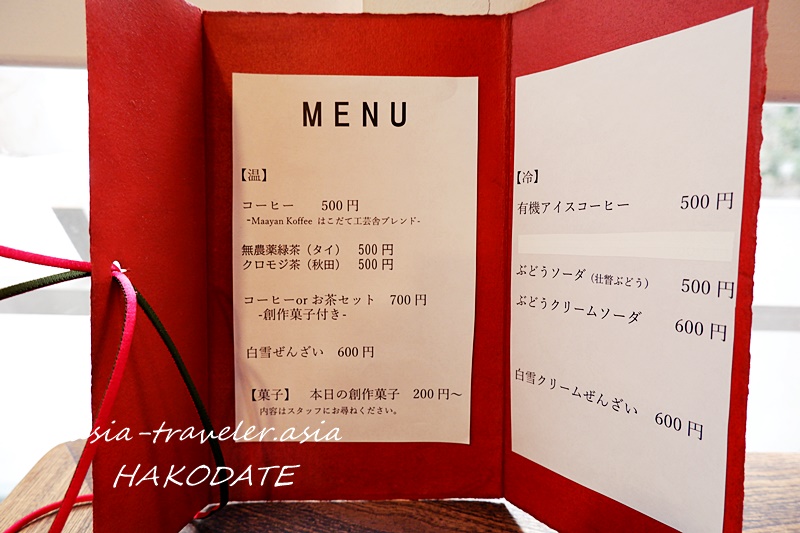 MENU
【温】
コーヒー 500円
-Maayan Koffee はこだて工芸舎ブレンド-
無農薬緑茶（タイ） 500円
クロモジ茶（秋田） 500円
コーヒーor お茶セット 700円
-創作菓子付き-
白雪ぜんざい 600円
【菓子】 本日の創作菓子 200円～
内容はスタッフにお尋ねください。
【冷】
有機アイスコーヒー 500円
ぶどうソーダ（壮瞥ぶどう） 500円
ぶどうクリームソーダ 600円
白雪クリームぜんざい 600円
sia-traveler.asia
HAKODATE